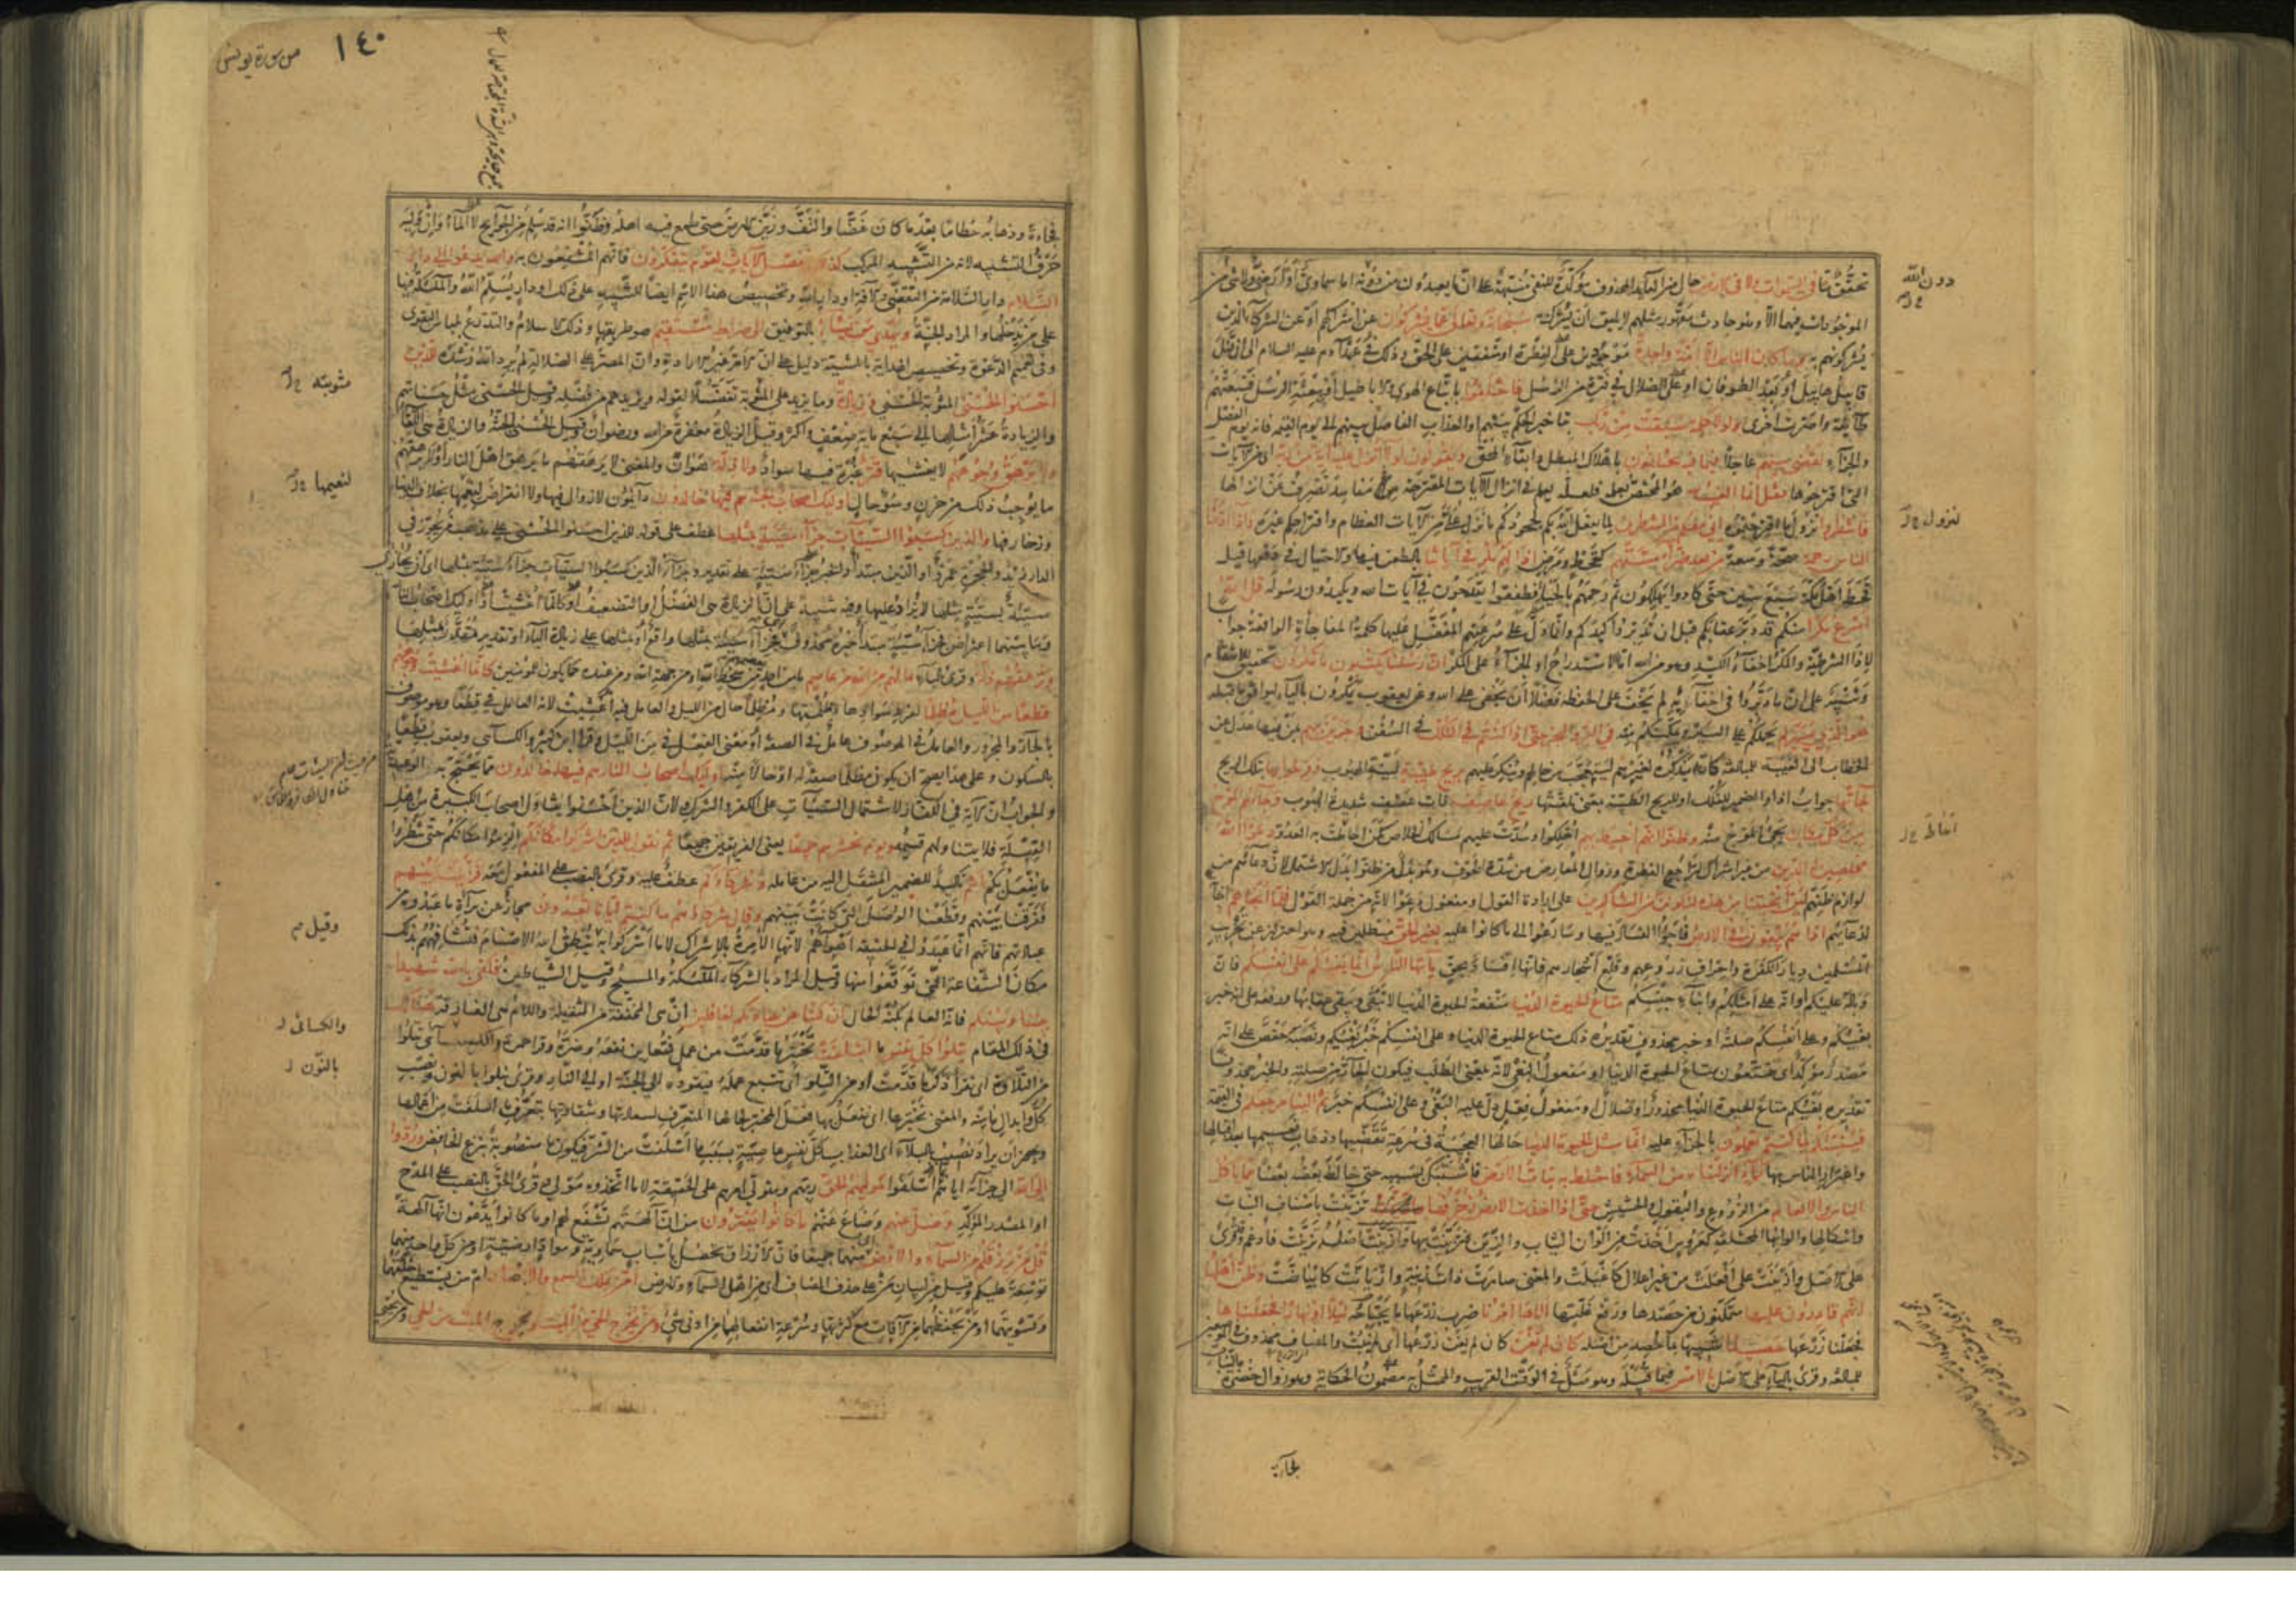 دون الله
تحقق ما في السموات ولا في الارض حال من العائد المحذوف مؤكدة للنفي منبهة على ان ما يعبدون من دونه اما سماوي او ارضي ولا شئ من
الموجودات فيهما الا وهو حادث مقهور مثلهم لا يليق ان يشرك به سبحانه وتعالى عما يشركون عن اشراكهم او عن الشركاء الذين
يشركونهم به وما كان الناس الا امة واحدة موحدين على الفطرة او متفقين على الحق وذلك في عهد آدم عليه السلام الى ان قتل
قابيل هابيل او بعد الطوفان او على الضلال في فترة من الرسل فاختلفوا باتباع الهوى والاباطيل او ببعثة الرسل فتبعتهم
طائفة واصرت اخرى ولولا كلمة سبقت من ربك بتاخير الحكم بينهم او العذاب الفاصل بينهم الى يوم القيمة فانه يوم الفصل
والجزاء لقضي بينهم عاجلا فيما فيه يختلفون باهلاك المبطل وابقاء المحق ويقولون لولا انزل عليه آية من ربه اي من الآيات
التي اقترحوها فقل انما الغيب لله هو المختص بعلمه فلعله يعلم في انزال الآيات المقترحة من مفاسد تصرف عن انزالها
نزول
فانتظروا نزول ما اقترحتموه اني معكم من المنتظرين لما يفعل الله بكم بجحودكم ما نزل علي من الآيات العظام واقتراحكم غيره واذا اذقنا
الناس رحمة صحة وسعة من بعد ضراء مستهم كقحط ومرض اذا لهم مكر في آياتنا بالطعن فيها والاحتيال في دفعها قيل
قحط اهل مكة سبع سنين حتى كادوا يهلكون ثم رحمهم بالحيا فطفقوا يقدحون في آيات الله ويكيدون رسوله قل الله
اسرع مكرا منكم قد دبر عقابكم قبل ان تدبروا كيدكم وانما دل على سرعتهم المفضل عليها كلمة المفاجأة الواقعة جوابا
لاذا الشرطية والمكر اخفاء الكيد وهو من الله اما الاستدراج او الجزاء على المكر ان رسلنا يكتبون ما تمكرون تحقيق للانتقام
وتنبيه على ان ما دبروا في اخفائه لم يخف على الحفظة فضلا ان يخفى على الله وعن يعقوب يمكرون بالياء ليوافق ما قبله
هو الذي يسيركم يحملكم على السير ويمكنكم منه في البر والبحر حتى اذا كنتم في الفلك في السفن وجرين بهم بمن فيها عدل عن
الخطاب الى الغيبة للمبالغة كانه تذكرة لغيرهم ليتعجب من حالهم وينكر عليهم بريح طيبة لينة الهبوب وفرحوا بها بتلك الريح
جاءتها جواب اذا والضمير للفلك او للريح الطيبة بمعنى تلقتها ريح عاصف ذات عصف شديدة الهبوب وجاءهم الموج
احاط
من كل مكان يجئ الموج منه وظنوا انهم احيط بهم اهلكوا وسدت عليهم مسالك الخلاص كمن احاط به العدو دعوا الله
مخلصين له الدين من غير اشراك لتراجع الفطرة وزوال المعارض من شدة الخوف وهو بدل من ظنوا بدل الاشتمال لان دعاءهم من
لوازم ظنهم لئن انجيتنا من هذه لنكونن من الشاكرين على ارادة القول او مفعول دعوا لانه من جملة القول فلما انجاهم اجابة
لدعائهم اذا هم يبغون في الارض فاجؤا الفساد فيها وسارعوا الى ما كانوا عليه بغير الحق مبطلين فيه وهو احتراز عن تخريب
المسلمين ديار الكفرة واحراق زروعهم وقلع اشجارهم فانها افساد بحق يا ايها الناس انما بغيكم على انفسكم فان
وباله عليكم او انه على امثالكم وابناء جنسكم متاع الحيوة الدنيا منفعة الحيوة الدنيا لا تبقى ويبقى عقابها ورفعه على انه خبر
بغيكم وعلى انفسكم صلته او خبر محذوف تقديره ذلك متاع الحيوة الدنيا وعلى انفسكم خبر بغيكم ونصبه حفص على انه
مصدر مؤكد اي تتمتعون متاع الحيوة الدنيا او مفعول البغي لانه بمعنى الطلب فيكون الجار من صلته والخبر محذوف
تقديره بغيكم متاع الحيوة الدنيا محذور او ضلال او مفعول فعل دل عليه البغي وعلى انفسكم خبره ثم الينا مرجعكم في القيمة
فننبئكم بما كنتم تعملون بالجزاء عليه انما مثل الحيوة الدنيا حالها العجيبة في سرعة تقضيها وذهاب نعيمها بعد اقبالها
واغترار الناس بها كماء انزلناه من السماء فاختلط به نبات الارض فاشتبك بسببه حتى خالط بعضه بعضا مما ياكل
الناس والانعام من الزروع والبقول والحشيش حتى اذا اخذت الارض زخرفها تزينت باصناف النبات
واشكالها والوانها المختلفة كعروس اخذت من الوان الثياب والزين فتزينت بها وازينت اصله تزينت فادغم وقرئ
على الاصل وازينت على افعلت من غير اعلال كاغيلت والمعنى صارت ذات زينة وازيانت كابياضت وظن اهلها
انهم قادرون عليها متمكنون من حصدها ورفع غلتها اتاها امرنا ضرب زرعها ما يجتاحه ليلا او نهارا فجعلناها
فجعلنا زرعها حصيدا شبيها بما حصد من اصله كان لم تغن كان لم يغن زرعها اي لم يلبث والمضاف محذوف في الموضعين
للمبالغة وقرئ بالياء على الاصل بالامس فيما قبيله وهو مثل في الوقت القريب والممثل به مضمون الحكاية وهو زوال خضرة النبات
فجاءة
١٤٠
من سورة يونس
فجاءة وذهابه حطاما بعد ما كان غضا والتف وزين الارض حتى طمع فيه اهله وظنوا انه قد سلم من الجوائح لا الماء وان وليه
حرف التشبيه لانه من التشبيه المركب كذلك نفصل الآيات لقوم يتفكرون فانهم المنتفعون به والله يدعو الى دار
السلام دار السلامة من التقضي والآفة او دار الله وتخصيص هذا الاسم ايضا للتنبيه على ذلك او دار يسلم الله والملائكة فيها
على من يدخلها والمراد الجنة ويهدي من يشاء بالتوفيق الى صراط مستقيم هو طريقها وذلك الاسلام والتدرع بلباس التقوى
وفي تعميم الدعوة وتخصيص الهداية بالمشية دليل على ان الامر غير الارادة وان المصر على الضلالة لم يرد الله رشده للذين
مثوبته
احسنوا الحسنى المثوبة الحسنى وزيادة وما يزيد على المثوبة تفضلا لقوله ويزيدهم من فضله وقيل الحسنى مثل حسناتهم
والزيادة عشر امثالها الى سبع ماية ضعف واكثر وقيل الزيادة مغفرة من الله ورضوان وقيل الحسنى الجنة والزيادة هي اللقاء
ولا يرهق وجوههم لا يغشيها قتر غبرة فيها سواد ولا ذلة هوان والمعنى لا يرهقهم ما يرهق اهل النار او لا يرهقهم
لنعيمها
ما يوجب ذلك من حزن وسوء حال اولئك اصحاب الجنة هم فيها خالدون دائمون لا زوال فيها ولا انقراض لنعيمها بخلاف الدنيا
وزخارفها والذين كسبوا السيئات جزاء سيئة بمثلها عطف على قوله للذين احسنوا الحسنى على مذهب من يجوز في
الدار زيد والحجرة عمرو او الذين مبتدأ والخبر جزاء سيئة على تقدير وجزاء الذين كسبوا السيئات جزاء سيئة بمثلها اي ان يجازى
سيئة بسيئة مثلها لا يزاد عليها وفيه تنبيه على ان الزيادة هي الفضل او التضعيف او كانما اغشيت او اولئك اصحاب النار
وما بينهما اعتراض فجزاء سيئة مبتدأ خبره محذوف اي فجزاء سيئة بمثلها واقع او بمثلها على زيادة الباء او تقدير مقدر بمثلها
وترهقهم ذلة وقرئ بالياء ما لهم من الله من عاصم ما من احد يعصمهم من سخط الله او من جهة الله ومن عنده كما يكون للمؤمنين كانما اغشيت وجوههم
قطعا من الليل مظلما لفرط سوادها وظلمتها ومظلما حال من الليل والعامل فيه اغشيت لانه العامل في قطعا وهو موصوف
بالجار والمجرور والعامل في الموصوف عامل في الصفة او معنى الفعل في من الليل وقرا ابن كثير والكسائي ويعقوب قطعا
بالسكون وعلى هذا يصح ان يكون مظلما صفة له او حالا منه اولئك اصحاب النار هم فيها خالدون مما يحتج به الوعيدية
والجواب ان الآية في الكفار لاشتمال السيئات على الكفر والشرك ولان الذين احسنوا يتناول اصحاب الكبيرة من اهل
القبلة فلا يتناولهم قسيمه ويوم نحشرهم جميعا يعني الفريقين جميعا ثم نقول للذين اشركوا مكانكم الزموا مكانكم حتى تنظروا
ما يفعل بكم انتم تاكيد للضمير المنتقل اليه من عامله وشركاؤكم عطف عليه وقرئ بالنصب على المفعول معه فزيلنا بينهم
وقيل
ففرقنا بينهم وقطعنا الوصل التي كانت بينهم وقال شركاؤهم ما كنتم ايانا تعبدون مجاز عن براءة ما عبدوه من
عبادتهم فانهم انما عبدوا في الحقيقة اهواءهم لانها الآمرة بالاشراك لا ما اشركوا به ينطق الله الاصنام فتشافههم بذلك
مكان الشفاعة التي توقعوا منها وقيل المراد بالشركاء الملائكة والمسيح وقيل الشياطين فكفى بالله شهيدا
والكسائي
بيننا وبينكم فانه العالم بكنه الحال ان كنا عن عبادتكم لغافلين ان هي المخففة من الثقيلة واللام هي الفارقة هنالك
في ذلك المقام تبلوا كل نفس ما اسلفت تختبر ما قدمت من عمل فتعاين نفعه وضره وقرا حمزة والكسائي تتلوا
بالنون
من التلاوة اي تقرا ذكر ما قدمت او من التلو اي تتبع عمله فيقوده الى الجنة او الى النار وقرئ نبلوا بالنون ونصب
كل وابدال ما منه والمعنى نختبرها اي نفعل بها فعل المختبر لحالها المتعرف لسعادتها وشقاوتها بتعرف ما اسلفت من اعمالها
ويجوز ان يراد نصيب بالبلاء اي العذاب كل نفس عاصية بسبب ما اسلفت من الشر فيكون ما منصوبة بنزع الخافض وردوا
الى الله الى جزائه اياهم بما اسلفوا موليهم الحق ربهم ومتولي امرهم على الحقيقة لا ما اتخذوه مولى وقرئ الحق بالنصب على المدح
او المصدر المؤكد وضل عنهم وضاع عنهم ما كانوا يفترون من ان آلهتهم تشفع لهم او ما كانوا يدعون انها آلهة
قل من يرزقكم من السماء والارض منهما جميعا فان الارزاق تحصل باسباب سماوية ومواد ارضية او من كل واحد منهما
توسعة عليكم وقيل من لبيان من على حذف المضاف اي من اهل السماء والارض امن يملك السمع والابصار ام من يستطيع خلقهما
وتسويتهما او من يحفظهما من الآفات مع كثرتها وسرعة انفعالهما من ادنى شئ ومن يخرج الحي من الميت ويخرج الميت من الحي ومن يحيي